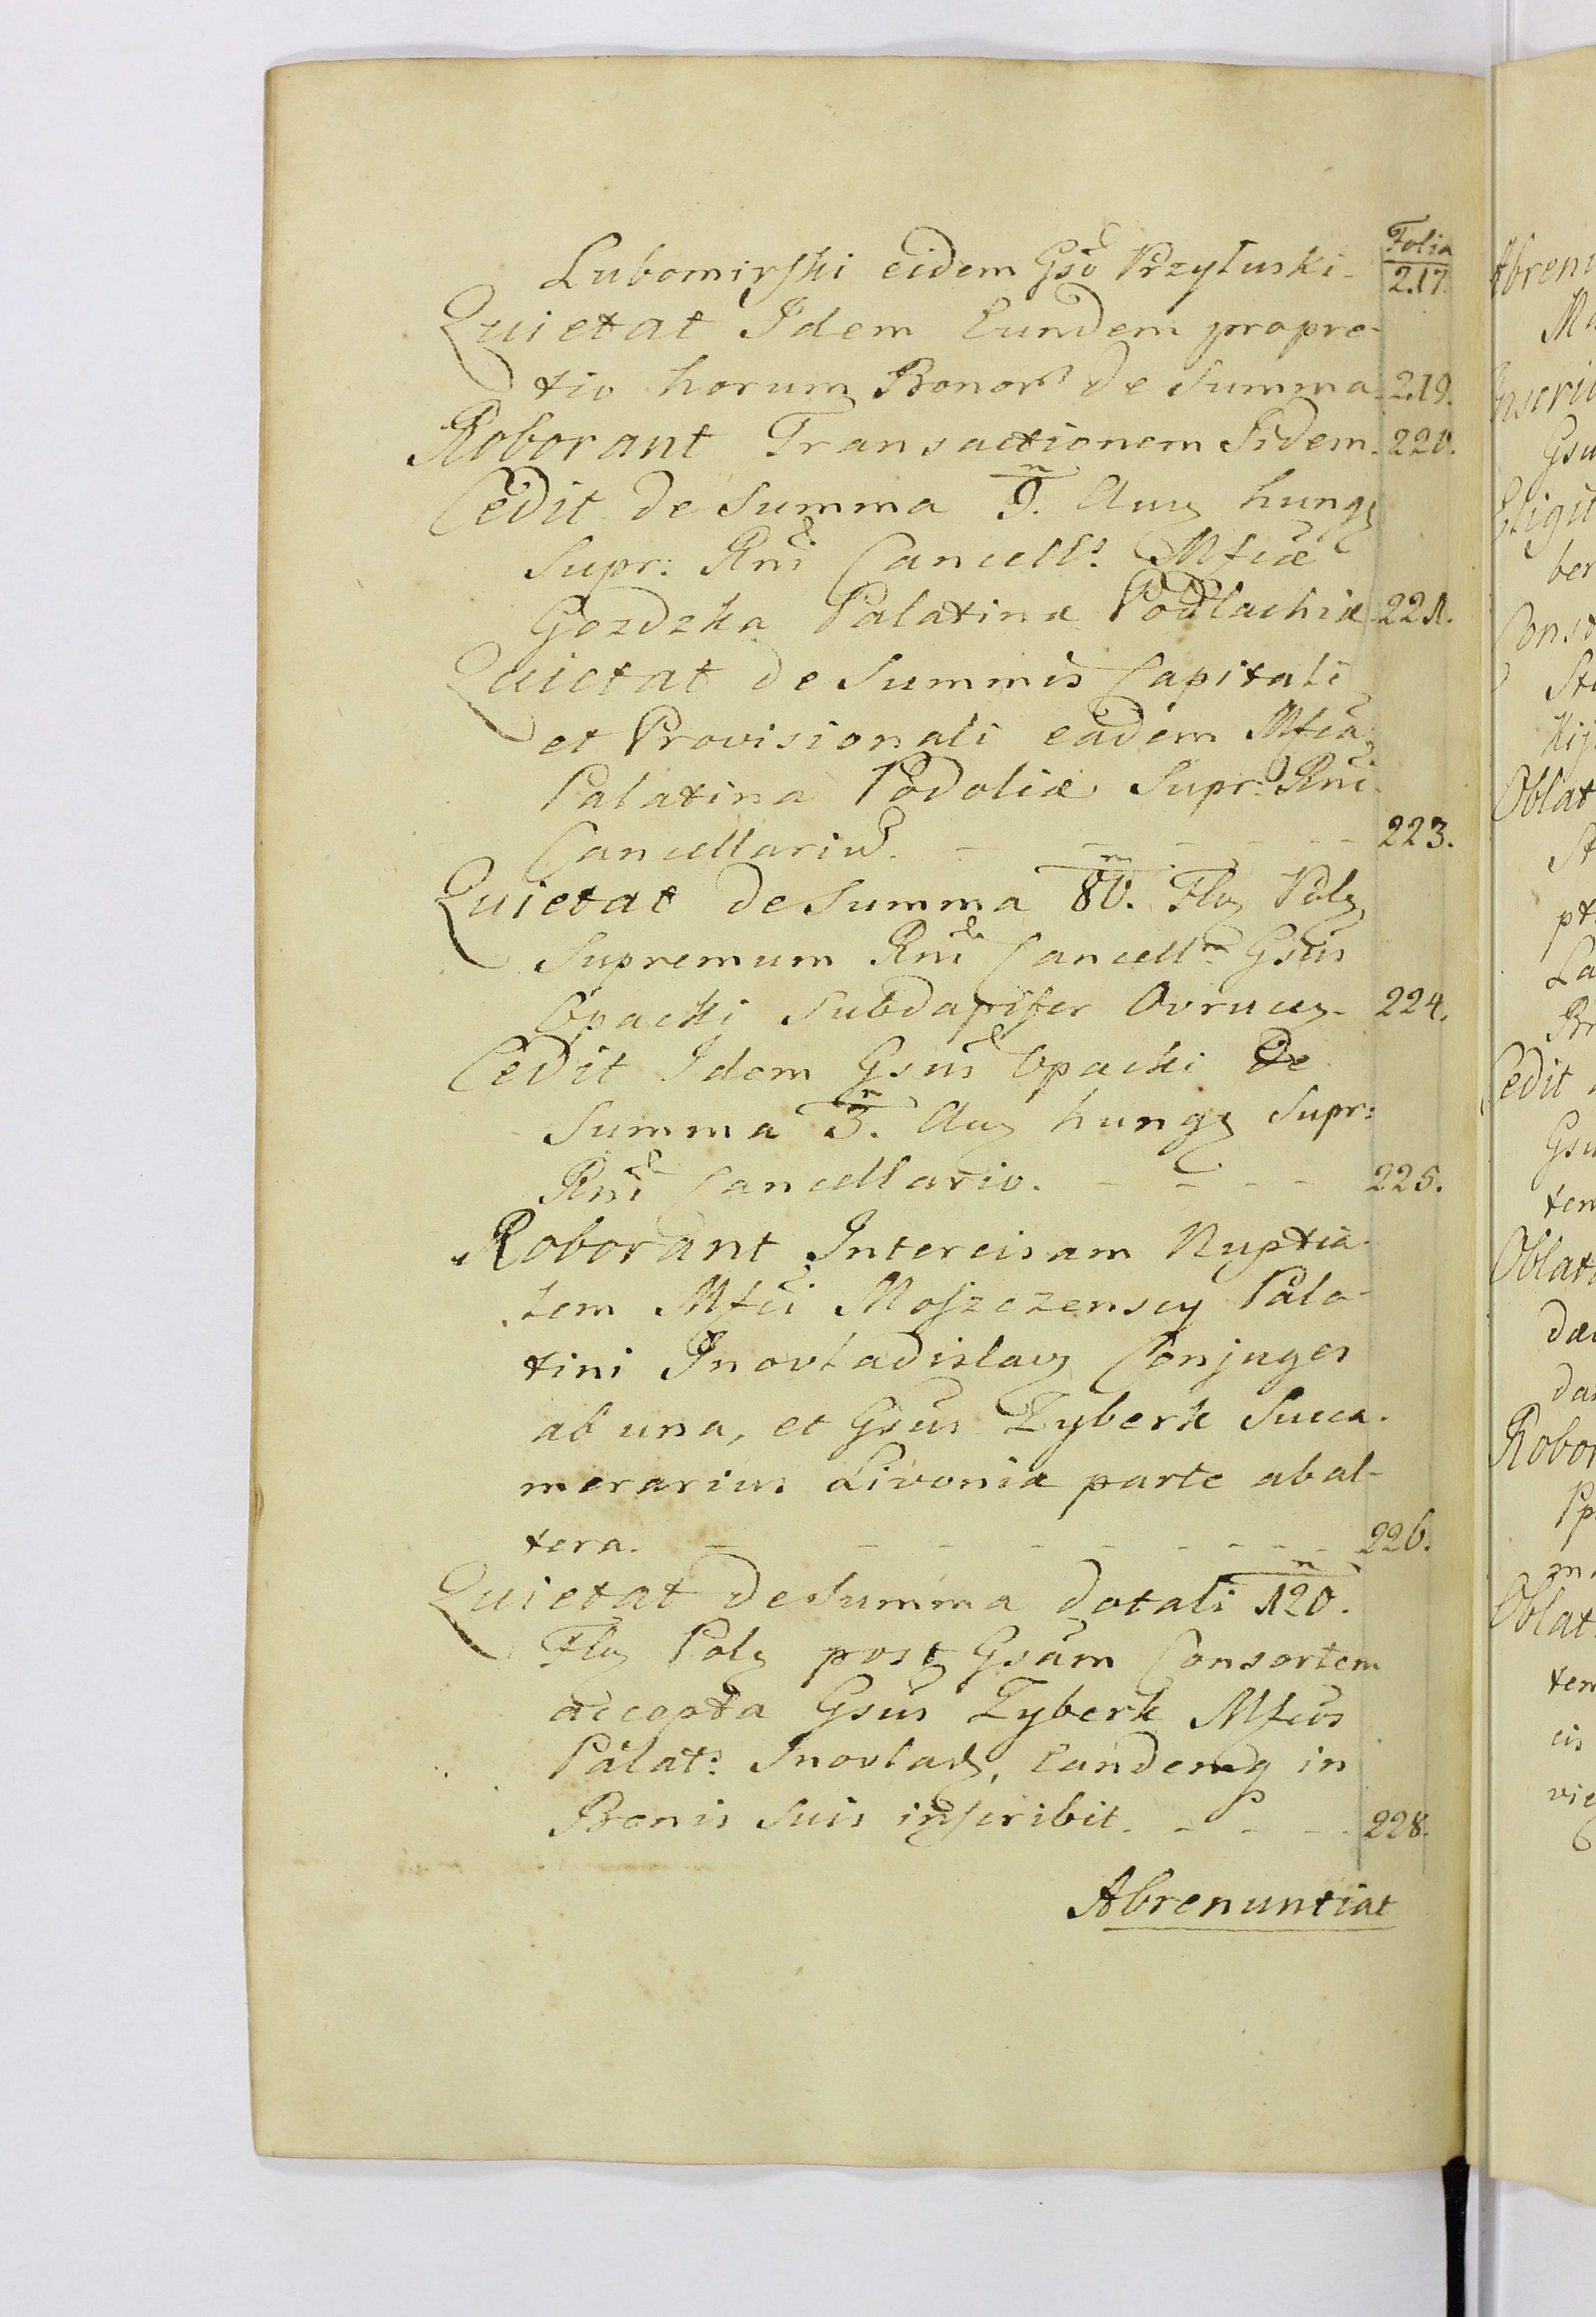 Folia
Lubomirski eidem Gso Przyłuski - 217.
Quietat Idem Eundem propre-
tio horum Bonor. de Summa - 219.
Roborant Transactionem Iidem. 220.
Cedit de Summa 9. Aur hung
Supr: Rni Cancell: Mfcæ
Gozdzka Palatinæ Podlachiæ 221.
Quietat de Summis Capitali
et Provisionali eadem Mfca
Palatina Podoliæ Supr: Rni
Cancellariū. - - - - - - 223.
Quietat de Summa 80. Flor Pol
Supremum Rni Cancell: Gsus
Opacki Subdapifer Ovrucen. 224.
Cedit Idem Gsus Opacki de
Summa 3. Aur hung Supr:
Rni Cancellario. - - - - 225.
Roborant Intercisam Nuptia-
lem Mfci Moszczenscy Pala-
tini Inovladislav Conjuges
ab una, et Gsus Zyberk Succa-
merarius Livoniæ parte ab al-
tera. - - - - - - - - - 226.
Quietat de Summa dotali 120.
Flor Pol post Gsam Consortem
accepta Gsus Zyberk Mfcus
Palat: Inovlad, Eandemq in
Bonis suis inscribit. - - - - 228.
Abrenuntiat
Abrenu
Ma
Inscrib
Gsu
Eligit
ber
Const
Sta
Kij
Oblat
St
pt
La
Br
Cedit
Gsu
tem
Oblat
dæ
da
Robor
Pp
m
Oblat
tem
cis
vig